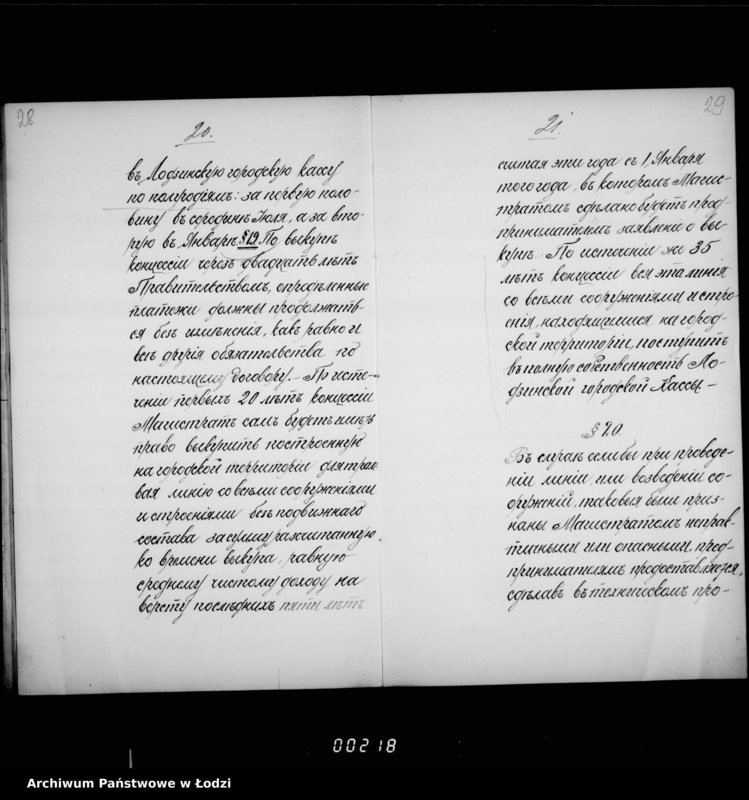 28
20.
въ Лодзинскую городскую кассу
по полугодіямъ: за первую поло-
вину въ середине Іюля, а за вто-
рую въ Январѣ. §19. По выкупѣ
концессіи черезъ двадцать лѣтъ
Правительствомъ, опредѣленные
платежи должны продолжать-
ся безъ измѣненія, какъ равно и
всѣ другія обязательства по
настоящему договору.– По исте-
ченіи первыхъ 20 лѣтъ концессіи
Магистратъ самъ будетъ имѣть
право выкупить построенную
на городской территоріи для трам
вая линію со всѣми сооруженіями
и строеніями безъ подвижнаго
состава за сумму разсчитанную
ко времени выкупа, равную
среднему чистому доходу на
версту послѣднихъ пяти лѣтъ
29
21.
считая эти года съ 1 Января
того года, въ которомъ Магис-
тратомъ сдѣлано будетъ пред-
принимателямъ заявленіе о вы-
купѣ. По истеченіи же 35
лѣтъ концессіи вся эта линія
со всѣми сооруженіями и стро-
енія, находящимися на город-
ской территоріи, поступитъ
въ полную собственность Ло-
дзинской городской Кассы –
§ 20.
Въ случаѣ если бы при проведе-
ніи линіи, или возведеніи со-
оруженій, таковыя были приз-
наны Магистратомъ неправ-
тильными или опасными, пред-
принимателямъ предоставляется,
сдѣлавъ въ техническомъ про-
00218
Archiwum Państwowe w Łodzi